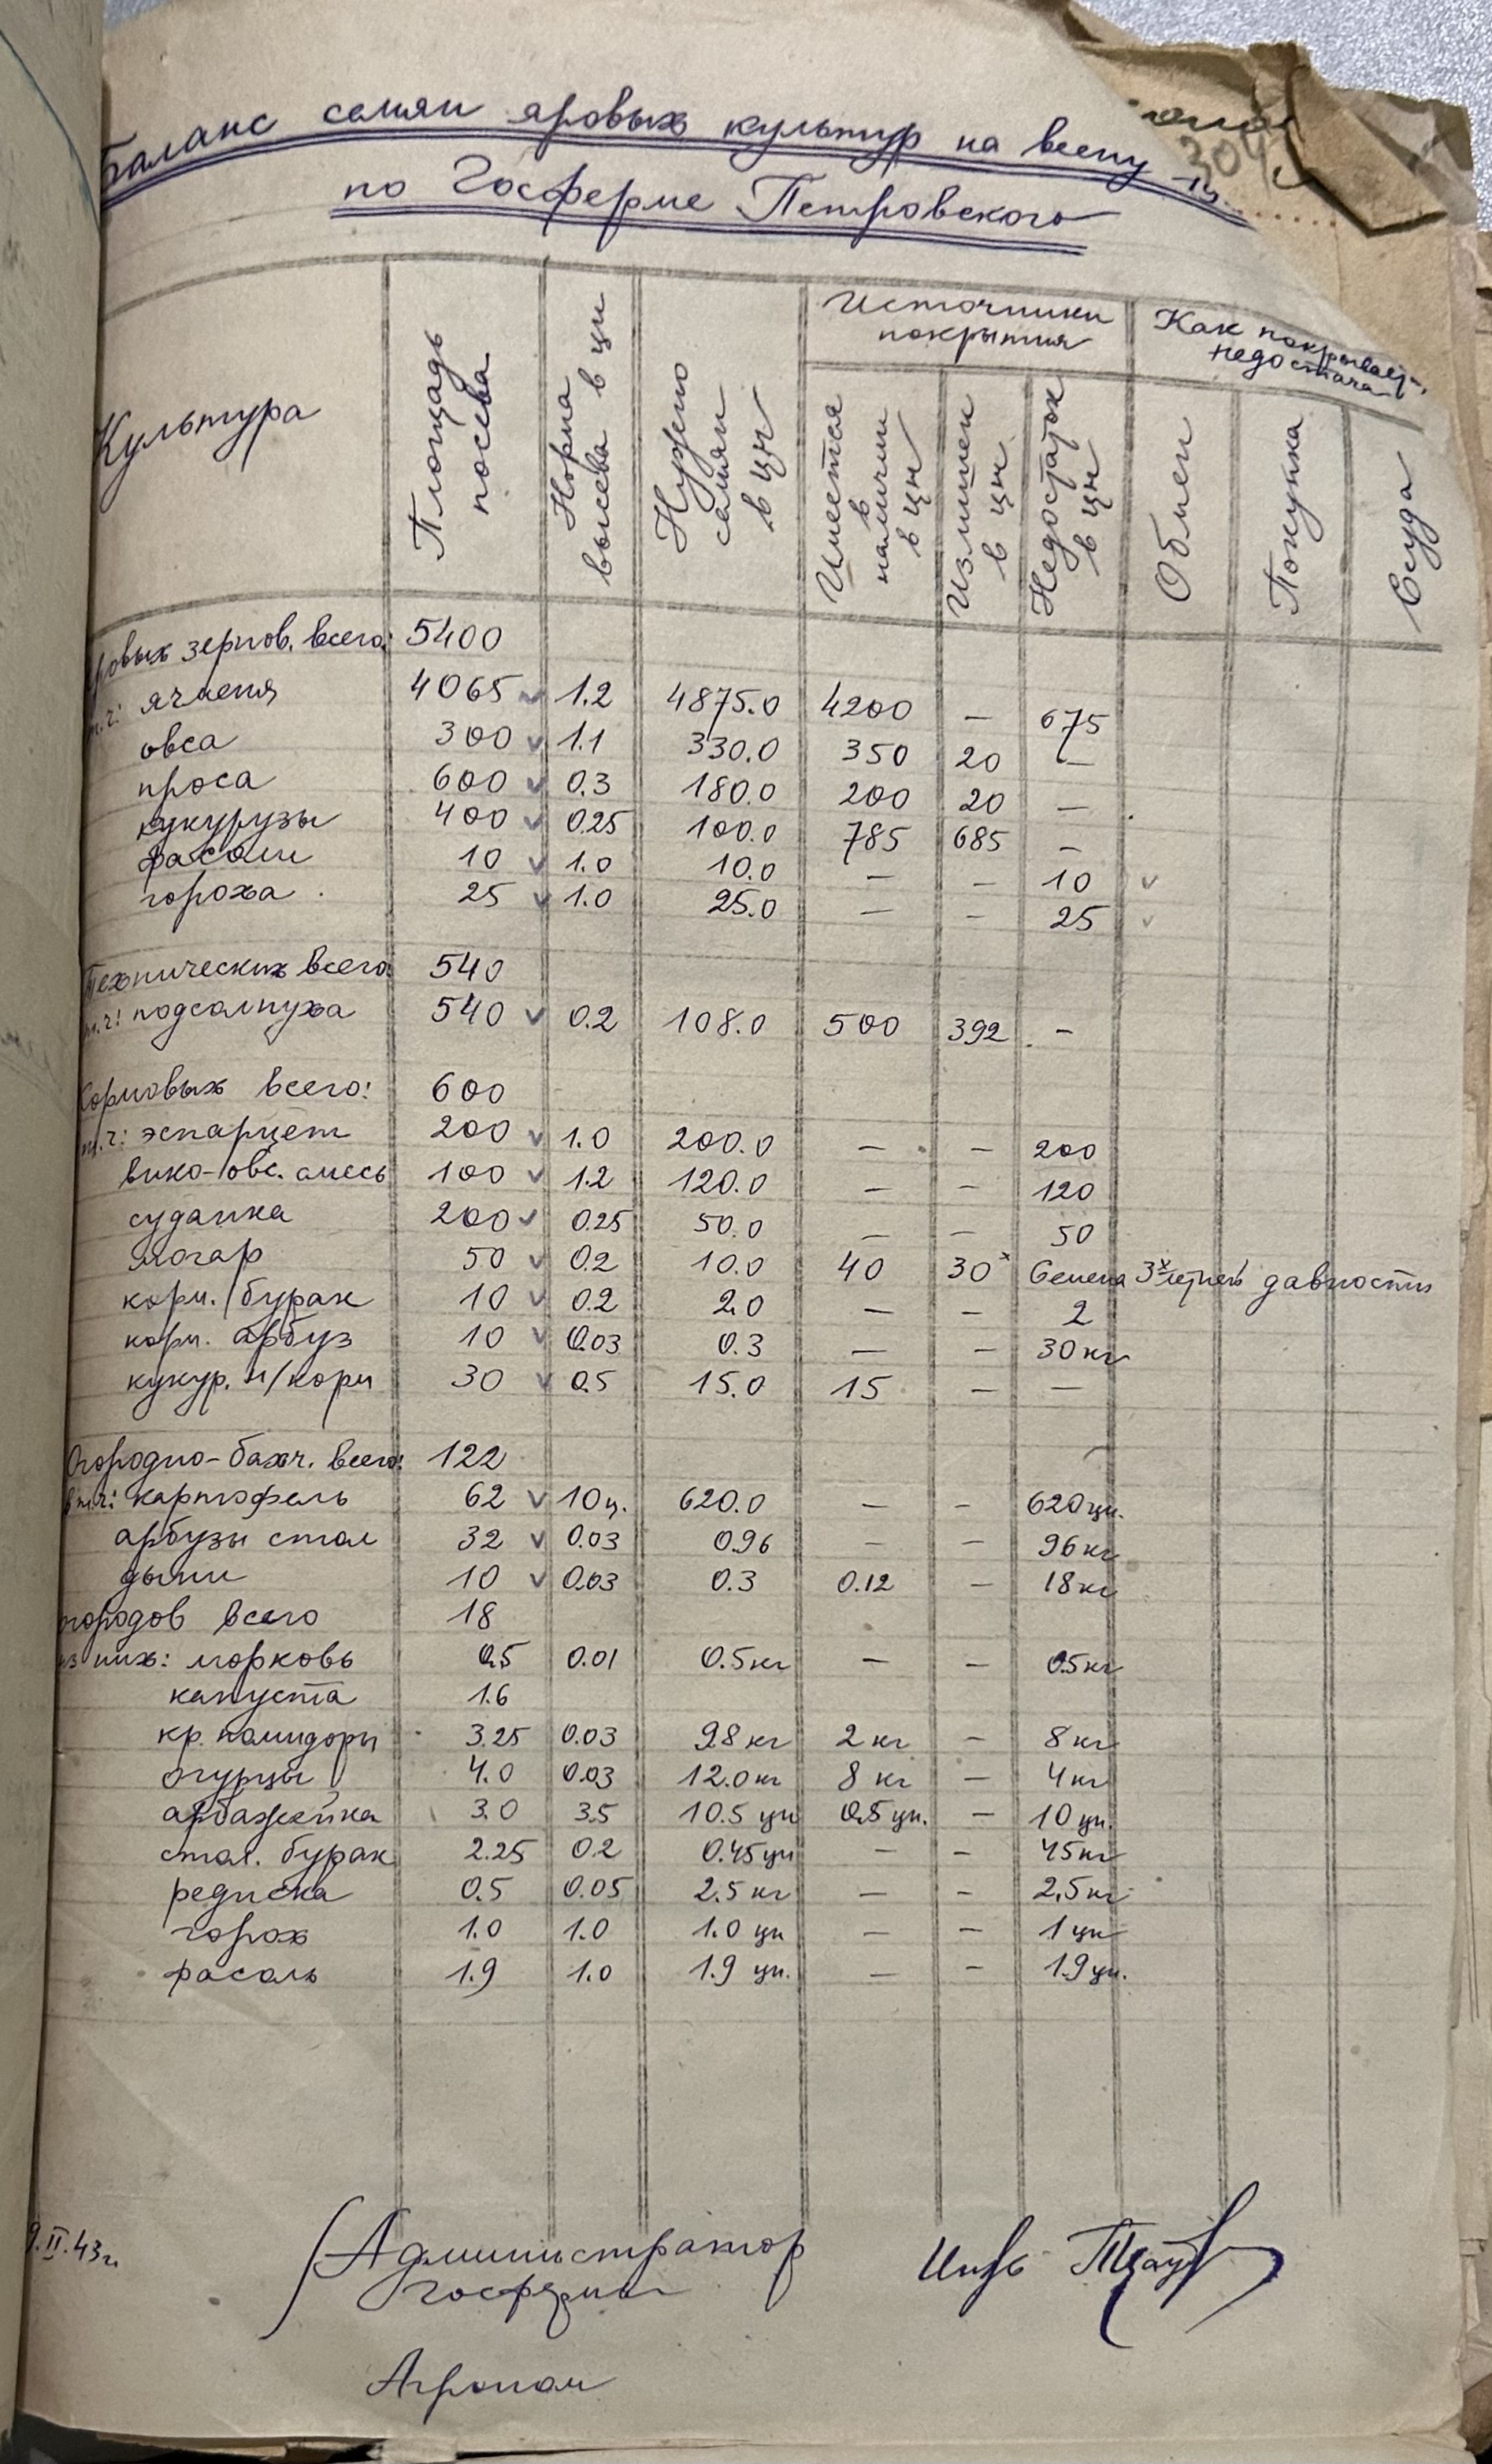 Баланс семян яровых культур на весну
по Госферме Петровского
304
Культура Площадь посева Норма высева в цн Нужно семян в цн Источники покрытия Как покрывает. недостача
Имеется в наличии в цн Излишек в цн Недостаток в цн Обмен Покупка Ссуда
ровых зернов. всего: 5400
т.ч: ячменя 4065 v 1.2 4875.0 4200 — 675
овса 300 v 1.1 330.0 350 20 —
проса 600 v 0.3 180.0 200 20 —
кукурузы 400 v 0.25 100.0 785 685 —
фасоли 10 v 1.0 10.0 — — 10 v
гороха 25 v 1.0 25.0 — — 25 v
Технических всего: 540
т.ч: подсолнуха 540 v 0.2 108.0 500 392 —
Кормовых всего: 600
т.ч: эспарцет 200 v 1.0 200.0 — — 200
вико-овс. смесь 100 v 1.2 120.0 — — 120
суданка 200 v 0.25 50.0 — — 50
могар 50 v 0.2 10.0 40 30x Семена 3х летней давности
корм. бурак 10 v 0.2 2.0 — — 2
корм. арбуз 10 v 0.03 0.3 — — 30 кг
кукур. н/корм 30 v 0.5 15.0 15 — —
Огородно-бахч. всего: 122
в т.ч: картофель 62 v 10 ц. 620.0 — — 620 цн.
арбузы стол 32 v 0.03 0.96 — — 96 кг
дыни 10 v 0.03 0.3 0.12 — 18 кг
огородов всего 18
из них: морковь 0.5 0.01 0.5 кг — — 0.5 кг
капуста 1.6
кр. помидоры 3.25 0.03 9.8 кг 2 кг — 8 кг
огурцы 4.0 0.03 12.0 кг 8 кг — 4 кг
арбажейка 3.0 3.5 10.5 цн 0.5 цн. — 10 цн.
стол. бурак 2.25 0.2 0.45 цн — — 45 кг
редиска 0.5 0.05 2.5 кг — — 2.5 кг
горох 1.0 1.0 1.0 цн — — 1 цн
фасоль 1.9 1.0 1.9 цн. — — 1.9 цн.
9.II.43 г.
Администратор
госфермы
Агроном